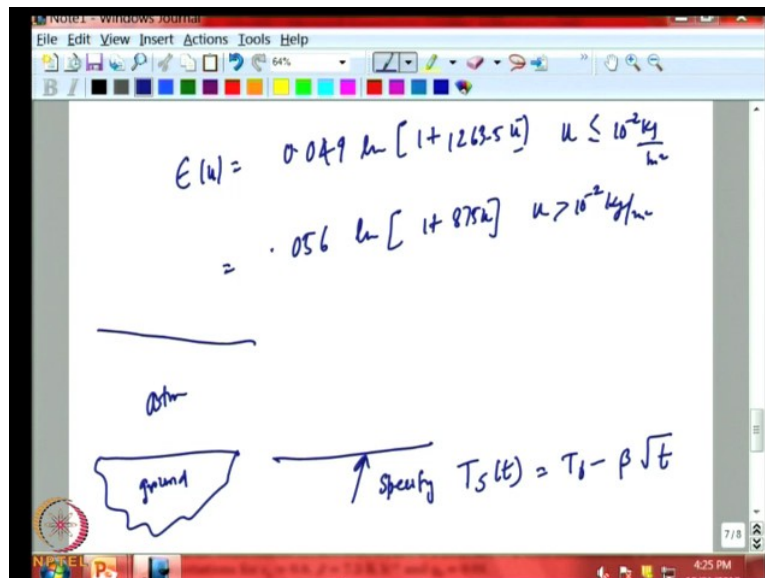 Note1 - Windows Journal
File Edit View Insert Actions Tools Help
64%
B I
ε(u) = 0.049 ln [1 + 1263.5 u] u ≤ 10⁻² kg/m²
= .056 ln [1 + 875u] u > 10⁻² kg/m²
atm
ground
Specify Ts(t) = T₀ - β √t
7/8
NPTEL
4:25 PM